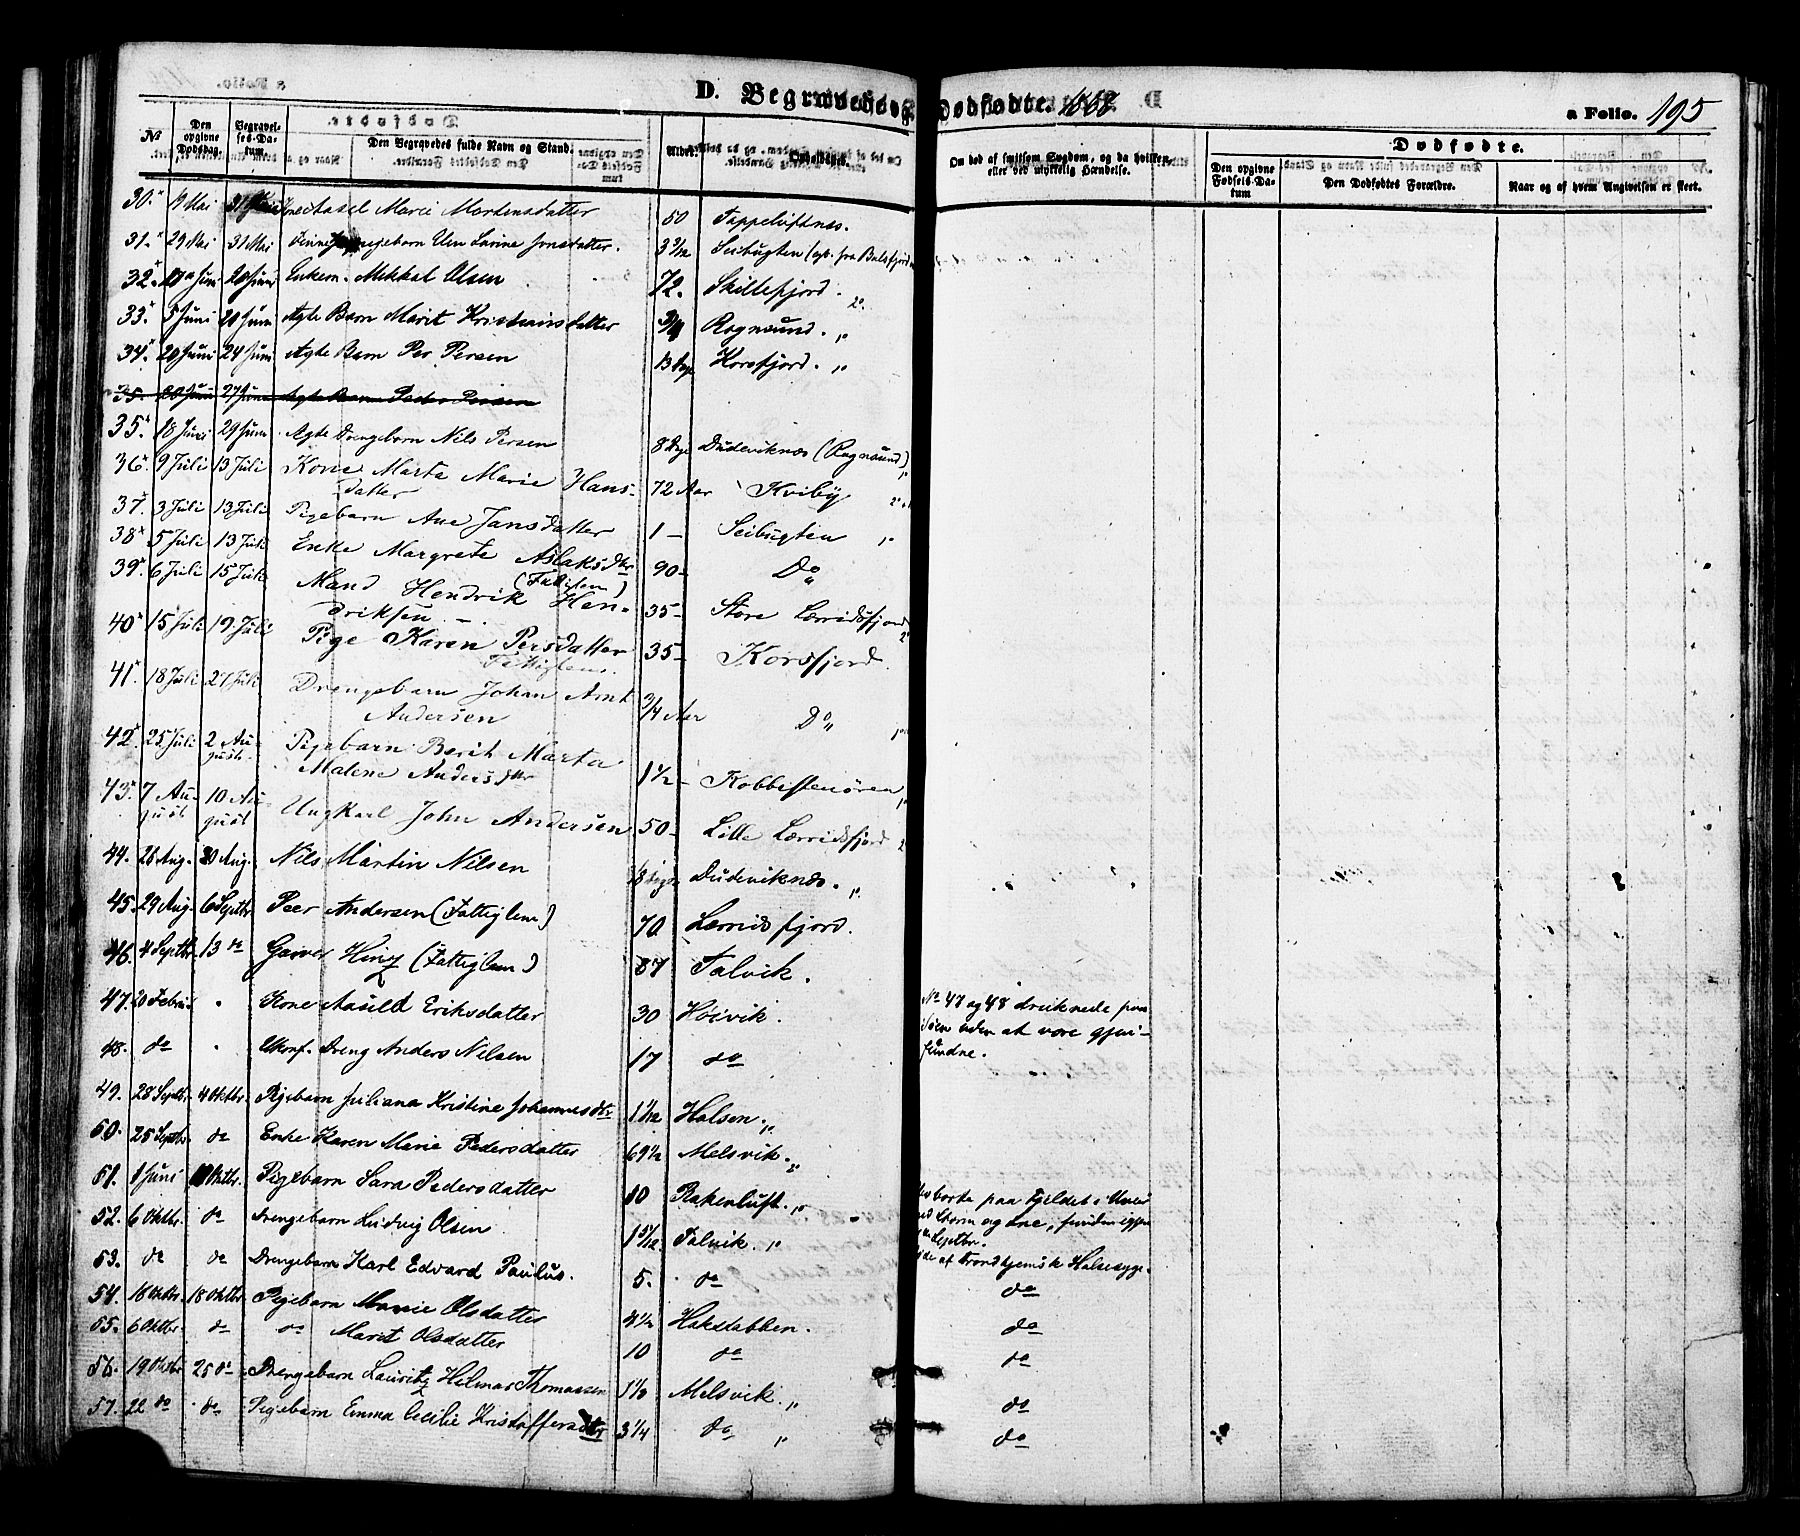 D. Begravede og Dødfødte. 1868
a Folio. 195
No
Den opgivne Dødsdag.
Begravelses-Datum.
Den Begravedes fulde Navn og Stand.
Alder.
Opholdssted.
Om død af smitsom Sygdom, og da hvilken, eller ved ulykkelig Hændelse.
Dødfødte.
Den opgivne Fødsels-Datum
Den Dødfødtes Forældre.
Naar og af hvem Angivelsen er skeet.
30. 19 Mai 31 Mai Aasel Marie Mortensdatter 50 Tappeluftnes.
31. 29 Mai 31 Mai Larine Jonsdatter. 3 Seibugten
32. Juni 20 Juni Enkem. Mikkal Olsen 72. Skillefjord. 2o.
33. 5 Juni 20 Juni Ægte Barn Marit Kristiansdatter 3/4 Rognsund. "
34. 20 Juni 24 Juni Ægte Barn Per Persen 13 Dage Korsfjord. "
35. 20 Juni 27 Juni Ægte Barn Peder Persen
35. 18 Juni 29 Juni Ægte Drengebarn Nils Persen 8 Dage Dudeviknæs (Rognsund) "
36. 9 Juli 13 Juli Kone Marta Marie Hans-
datter 72 Aar Kviby
37. 3 Juli 13 Juli Pigebarn Ane Jansdatter 1 - Seibugten "
38. 5 Juli 13 Juli Enke Margrete Aslaksdtr
(Fattiglem) 90 - Do "
39. 6 Juli 15 Juli Mand Hendrik Hen-
driksen 35 - Store Lerridsfjord
40. 15 Juli 19 Juli Pige Karen Persdatter
Fattiglem. 35 - Korsfjord.
41. 18 Juli 27 Juli Drengebarn Johan Arnt
Andersen 3/4 Aar Do "
42. 25 Juli 2 Au-
gust. Pigebarn Berit Marta
Malene Andersdtr 1 1/2 - Kobbestenören "
43. 7 Au-
gust 10 Au-
gust Ungkarl John Andersen 50 - Lille Lerridsfjord
44. 26 Aug. 30 Aug. Nils Martin Nilsen Dudeviknæs. "
45. 29 Aug. 6 Septbr Peer Andersen (Fattiglem) 70 Lerridsfjord.
46. 4 Septbr 13 do (Fattiglem) 87 Talvik.
47. 20 Februar " Kone Aasild Eriksdatter 30 Høivik. No 47 og 48 druknede paa
Søen uden at være gjen-
fundne.
48. do " Ukonf. Dreng Anders Nilsen 17 do
49. 28 Septbr. 4 Oktbr. Pigebarn Juliana Kristine Johannesdtr 1 1/12 Halsen. "
50. 25 Septbr. do Enke Karen Marie Pedersdatter 69 1/2 Melsvik. "
51. 1 Juni Oktbr. Pigebarn Sara Pedersdatter 10 Rakenluft. " borte paa Fjeldet i
Storm og Sne, funden igjen
Septbr.
52. 6 Oktbr. do Drengebarn Ludvig Olsen 1 5/12 Talvik. " af Trondhjemsk Halssyge.
53. do do Drengebarn Karl Edvard Paulus. 5. do do
54. 16 Oktbr. 18 Oktbr. Pigebarn Marie Olsdatter 4 1/2 Hakstabben. do
55. 6 Oktbr. do do Marit Olsdatter 10 do do
56. 19 Oktbr 25 do Drengebarn Lauritz Hilmar Thomassen Melsvik. " do
57. 22 do do Pigebarn Emma Cecilie Kristoffersdtr 3 1/4 do " do